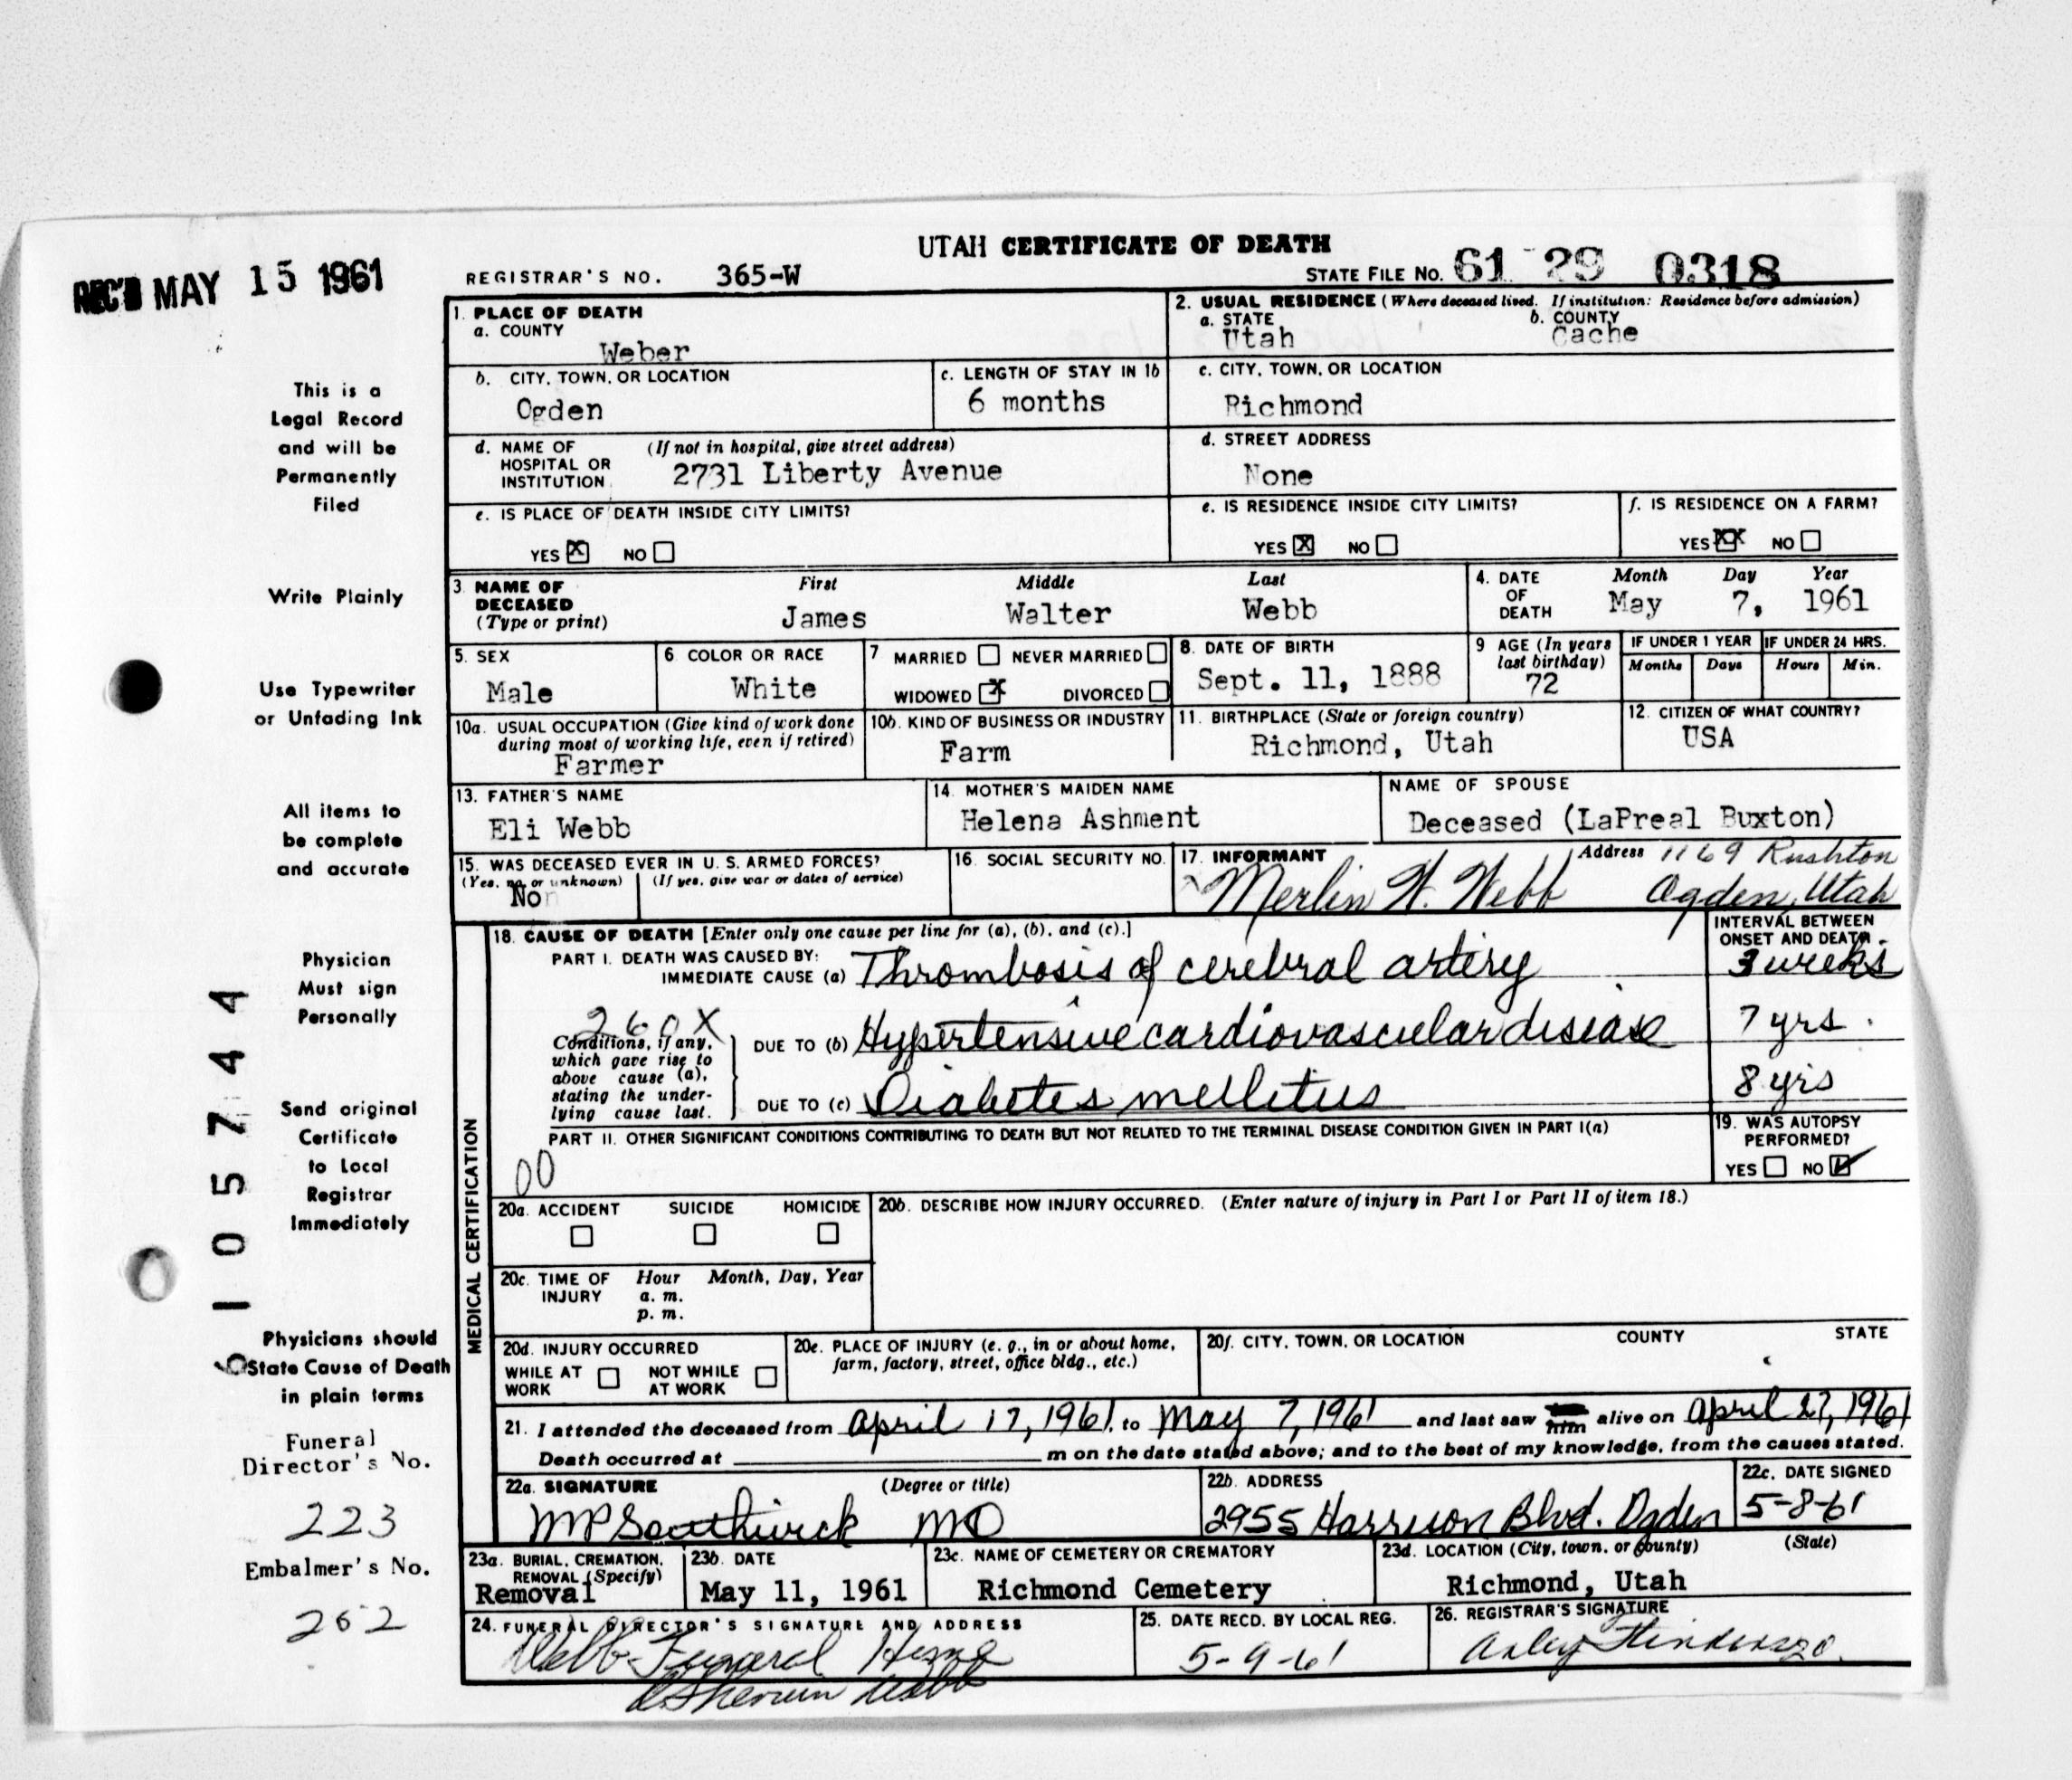 UTAH CERTIFICATE OF DEATH
REC'D MAY 15 1961
REGISTRAR'S NO. 365-W
STATE FILE NO. 61 29 0318
1. PLACE OF DEATH
a. COUNTY
Weber
2. USUAL RESIDENCE (Where deceased lived. If institution: Residence before admission)
a. STATE
Utah
b. COUNTY
Cache
b. CITY, TOWN, OR LOCATION
Ogden
c. LENGTH OF STAY IN 1b
6 months
c. CITY, TOWN, OR LOCATION
Richmond
d. NAME OF HOSPITAL OR INSTITUTION (If not in hospital, give street address)
2731 Liberty Avenue
d. STREET ADDRESS
None
e. IS PLACE OF DEATH INSIDE CITY LIMITS?
YES X NO
e. IS RESIDENCE INSIDE CITY LIMITS?
YES X NO
f. IS RESIDENCE ON A FARM?
YES XX NO
3. NAME OF DECEASED (Type or print)
First Middle Last
James Walter Webb
4. DATE OF DEATH
Month Day Year
May 7, 1961
5. SEX
Male
6. COLOR OR RACE
White
7 MARRIED NEVER MARRIED
WIDOWED X DIVORCED
8. DATE OF BIRTH
Sept. 11, 1888
9 AGE (In years last birthday)
72
IF UNDER 1 YEAR IF UNDER 24 HRS.
Months Days Hours Min.
10a. USUAL OCCUPATION (Give kind of work done during most of working life, even if retired)
Farmer
10b. KIND OF BUSINESS OR INDUSTRY
Farm
11. BIRTHPLACE (State or foreign country)
Richmond, Utah
12. CITIZEN OF WHAT COUNTRY?
USA
13. FATHER'S NAME
Eli Webb
14. MOTHER'S MAIDEN NAME
Helena Ashment
NAME OF SPOUSE
Deceased (LaPreal Buxton)
15. WAS DECEASED EVER IN U. S. ARMED FORCES?
(Yes, no, or unknown) (If yes, give war or dates of service)
No
16. SOCIAL SECURITY NO.
17. INFORMANT
Merlin W. Webb
Address 1169 Rushton
Ogden, Utah
MEDICAL CERTIFICATION
18. CAUSE OF DEATH [Enter only one cause per line for (a), (b), and (c).]
INTERVAL BETWEEN ONSET AND DEATH
PART I. DEATH WAS CAUSED BY:
IMMEDIATE CAUSE (a) Thrombosis of cerebral artery
3 weeks
260X
Conditions, if any, which gave rise to above cause (a), stating the underlying cause last.
DUE TO (b) Hypertensive cardiovascular disease
7 yrs.
DUE TO (c) Diabetes mellitus
8 yrs
PART II. OTHER SIGNIFICANT CONDITIONS CONTRIBUTING TO DEATH BUT NOT RELATED TO THE TERMINAL DISEASE CONDITION GIVEN IN PART I(a)
00
19. WAS AUTOPSY PERFORMED?
YES NO ✓
20a. ACCIDENT SUICIDE HOMICIDE
20b. DESCRIBE HOW INJURY OCCURRED. (Enter nature of injury in Part I or Part II of item 18.)
20c. TIME OF INJURY Hour Month, Day, Year
a. m.
p. m.
20d. INJURY OCCURRED
WHILE AT WORK NOT WHILE AT WORK
20e. PLACE OF INJURY (e. g., in or about home, farm, factory, street, office bldg., etc.)
20f. CITY, TOWN, OR LOCATION COUNTY STATE
21. I attended the deceased from April 17, 1961, to May 7, 1961 and last saw him alive on April 27, 1961
Death occurred at m on the date stated above; and to the best of my knowledge, from the causes stated.
22a. SIGNATURE (Degree or title)
MP Southwick MD
22b. ADDRESS
2955 Harrison Blvd. Ogden
22c. DATE SIGNED
5-8-61
23a. BURIAL, CREMATION, REMOVAL (Specify)
Removal
23b. DATE
May 11, 1961
23c. NAME OF CEMETERY OR CREMATORY
Richmond Cemetery
23d. LOCATION (City, town, or county) (State)
Richmond, Utah
24. FUNERAL DIRECTOR'S SIGNATURE AND ADDRESS
Webb Funeral Home
Sherwin Webb
25. DATE RECD. BY LOCAL REG.
5-9-61
26. REGISTRAR'S SIGNATURE
This is a
Legal Record
and will be
Permanently
Filed
Write Plainly
Use Typewriter
or Unfading Ink
All items to
be complete
and accurate
Physician
Must sign
Personally
Send original
Certificate
to Local
Registrar
Immediately
Physicians should
State Cause of Death
in plain terms
6105744
Funeral
Director's No.
223
Embalmer's No.
262